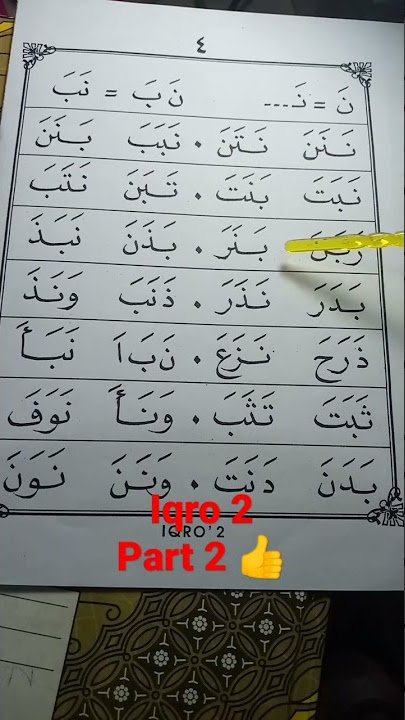 ٤
نَ = نَـ... نَ بَ = نَبَ
نَنَنَ نَتَنَ • نَبَبَ بَنَنَ
نَبَتَ بَنَتَ • تَبَنَ نَتَبَ
رَبَنَ بَنَرَ • بَذَنَ نَبَذَ
بَدَرَ نَذَرَ • ذَنَبَ وَنَذَ
ذَرَحَ نَزَعَ • نَبَاَ نَبَأَ
ثَبَتَ تَثَبَ • وَنَأَ نَوَفَ
بَدَنَ دَنَتَ • وَنَنَ نَوَنَ
Iqro 2
IQRO' 2
Part 2 👍